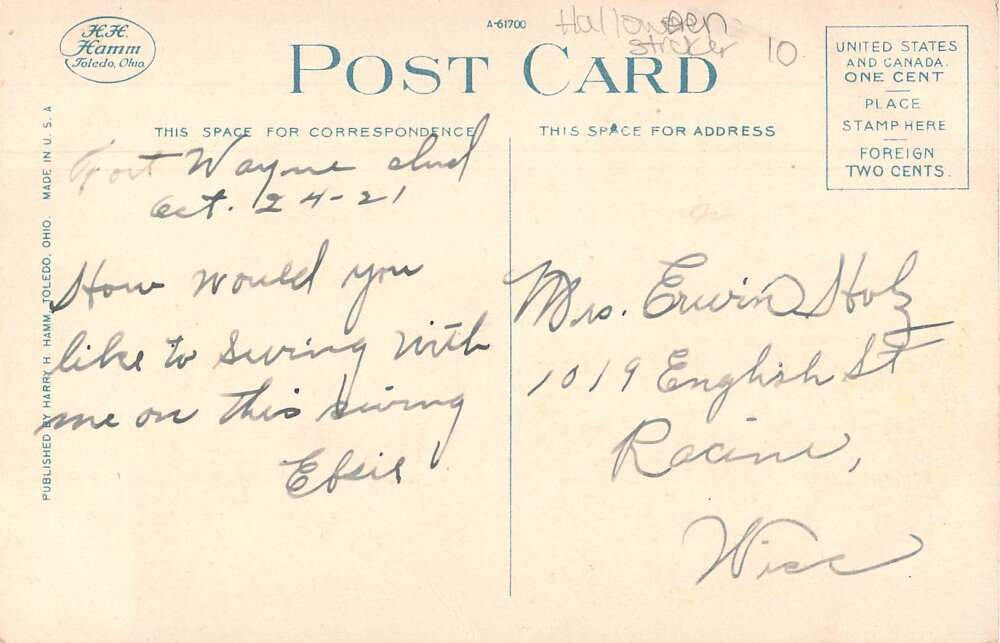 H.H.
Hamm
Toledo, Ohio.
A-61700
Halloween
sticker 10
POST CARD
UNITED STATES
AND CANADA.
ONE CENT
PLACE
STAMP HERE
FOREIGN
TWO CENTS.
THIS SPACE FOR CORRESPONDENCE
THIS SPACE FOR ADDRESS
Fort Wayne Ind
Oct. 24-21
How would you
like to swing with
me on this swing
Elsie
Mrs. Erwin Holz
1019 English St
Racine,
Wisc
PUBLISHED BY HARRY H. HAMM, TOLEDO, OHIO. MADE IN U. S. A